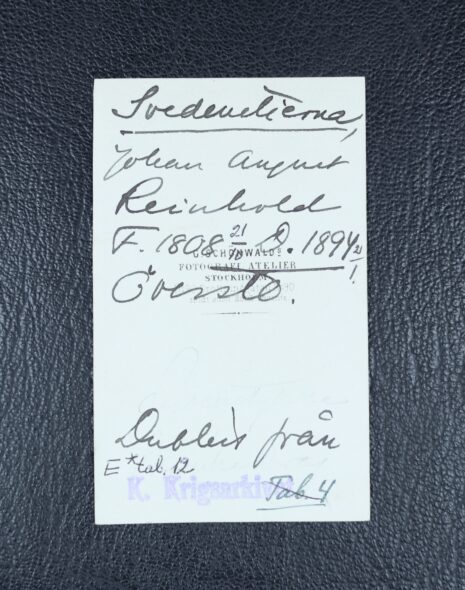 Svedenstierna,
Johan August
Reinhold
F. 1808 21/10 D. 1894 21/1
G. SCHÖNWALDS
FOTOGRAFI ATELIER
STOCKHOLM
Överste.
Dublett från
E* tab. 12
K. Krigsarkivet
Tab. 4